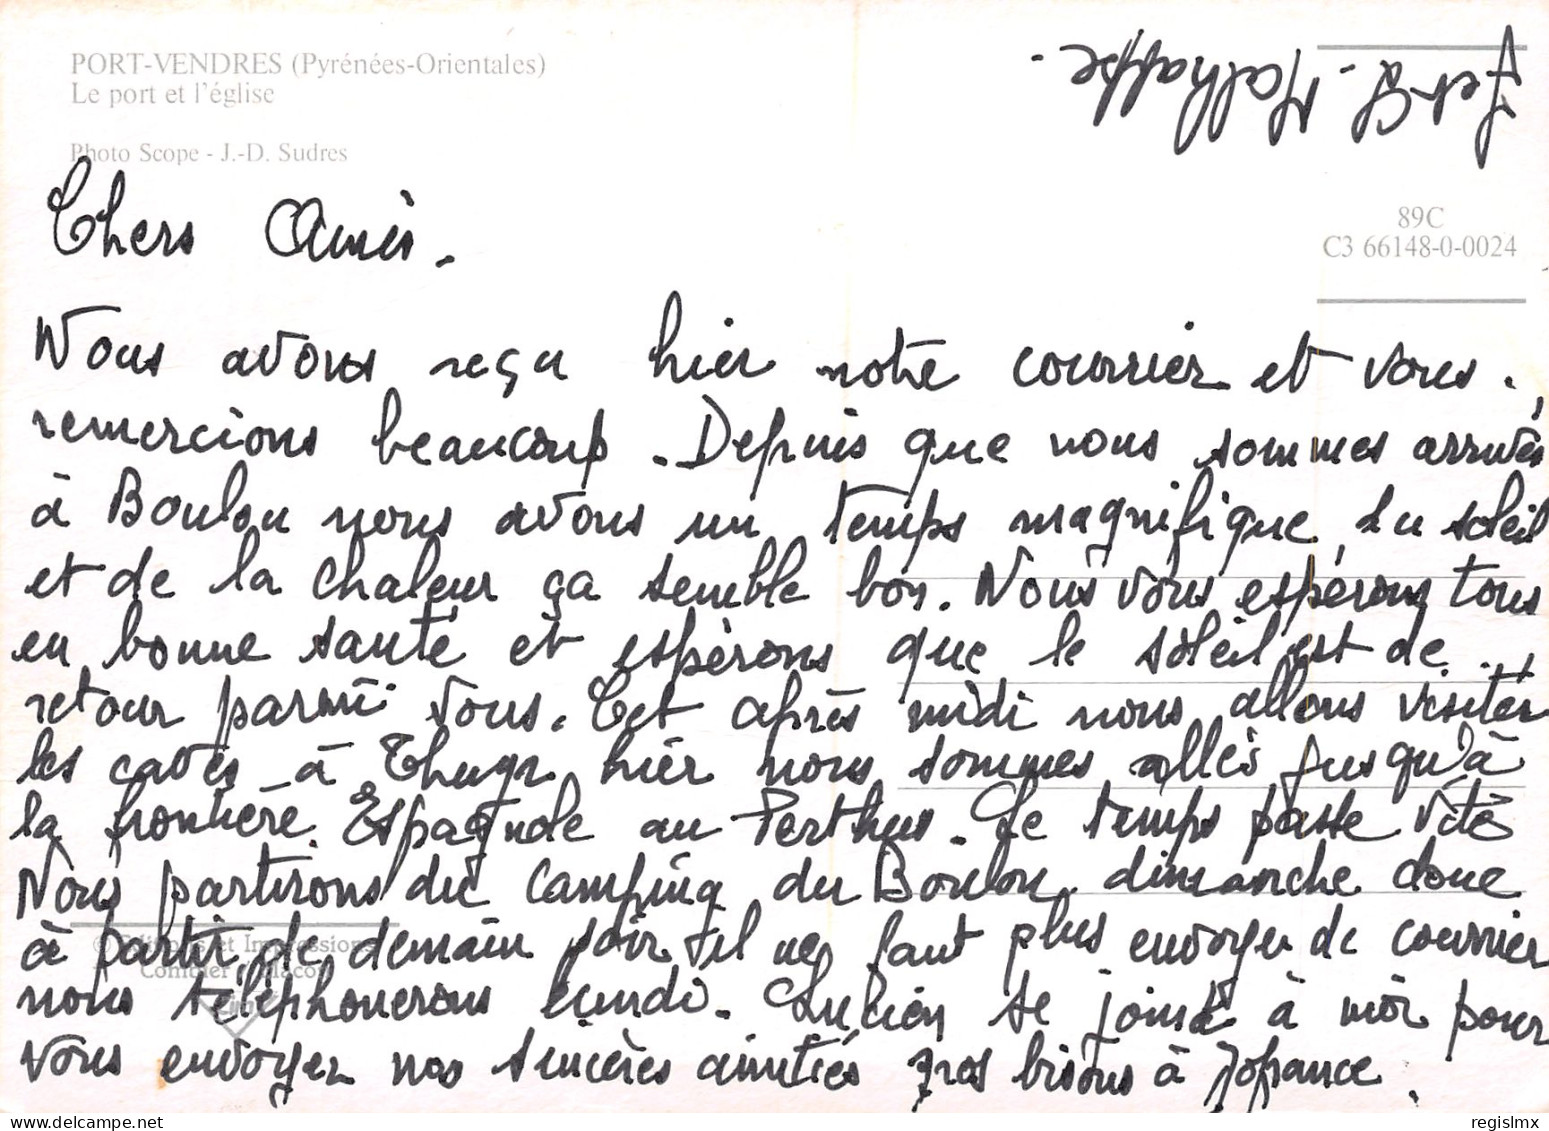 PORT-VENDRES (Pyrénées-Orientales)
Le port et l'église
Photo Scope - J.-D. Sudres
89C
C3 66148-0-0024
Chers Amis.
Nous avons reçu hier notre courrier et vous
remercions beaucoup. Depuis que nous sommes arrivés
à Boulou nous avons un temps magnifique, du soleil
et de la chaleur ça semble bon. Nous vous espérons tous
en bonne santé et espérons que le soleil est de
retour parmi vous. Cet après midi nous allons visiter
les caves à Thuir hier nous sommes allés jusqu'à
la frontière Espagnole au Perthus. Le temps passe vite
Nous partirons du camping du Boulou dimanche donc
à partir de demain soir il ne faut plus envoyer de courrier
nous téléphonerons lundi. Lucien se joint à moi pour
vous envoyer nos sincères amitiés gros bisous à Jofrance.
© Editions et Impressions
Combier Macon
regislmx